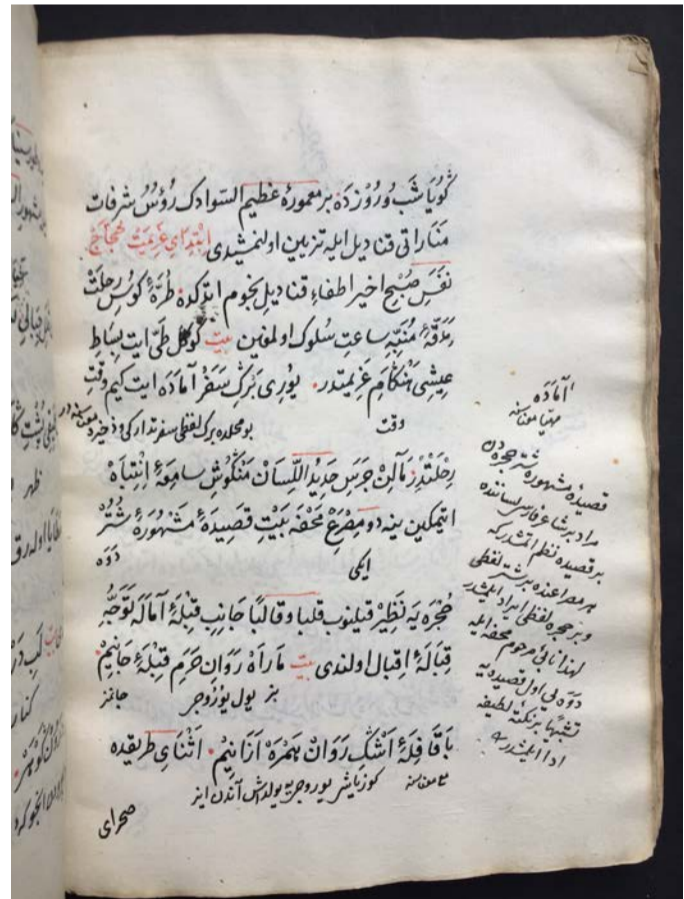 گویا شب و روزده بر معمورهٔ عظیم السوادك رؤس شرفات
مناراتی قنادیل ایله تزیین اولنمشدی ابتدای عزیمت حجاج
نفس صبح اخیر اطفاء قنادیل نجوم ایتدکده طرهٔ کوس رحلت
منبهٔ ساعت سلوك اولمغین بیت کوکل طی ایت بساط
عیشی هنکام عزیمتدر یوری برك سفر آماده ایت کیم وقت
وقت
بو محلده برك لفظی سفر تدارکی و ذخیره معناسنه در
رحلتدر مآلن جرس حدید اللسان منکوش سامعهٔ انتباه
ایتمکین ینه دو مصرع محفه بیت قصیدهٔ مشهورهٔ شتر
ایکی
دوه
حجره یه نظیر قیلنوب قلبا و قالبا جانب قبلهٔ آماله توجه
قبالهٔ اقبال اولندی بیت ماراه روان حرم قبلهٔ جانیم
بز یول یوروجی
جانمز
با قافلهٔ اشك روان همره آنانیم اثنای طریقده
مع معناسنه
کوز یاشی یوروجی یه یولداش آندن ایز
صحرای
آماده
مهیا معناسنه
قصیدهٔ مشهوره شتر حجره دن
مراد بر شاعر فارس لسانندە
بر قصیده نظم ایتمشدر که
هر مصراعنده بر شتر لفظی
و بر حجره لفظی ایراد ایلمشدر
لهذا نابی مرحوم محفه ایله
دوه یی اول قصیده یه
تشبیها بر نکتهٔ لطیفه
ادا ایلمشدر